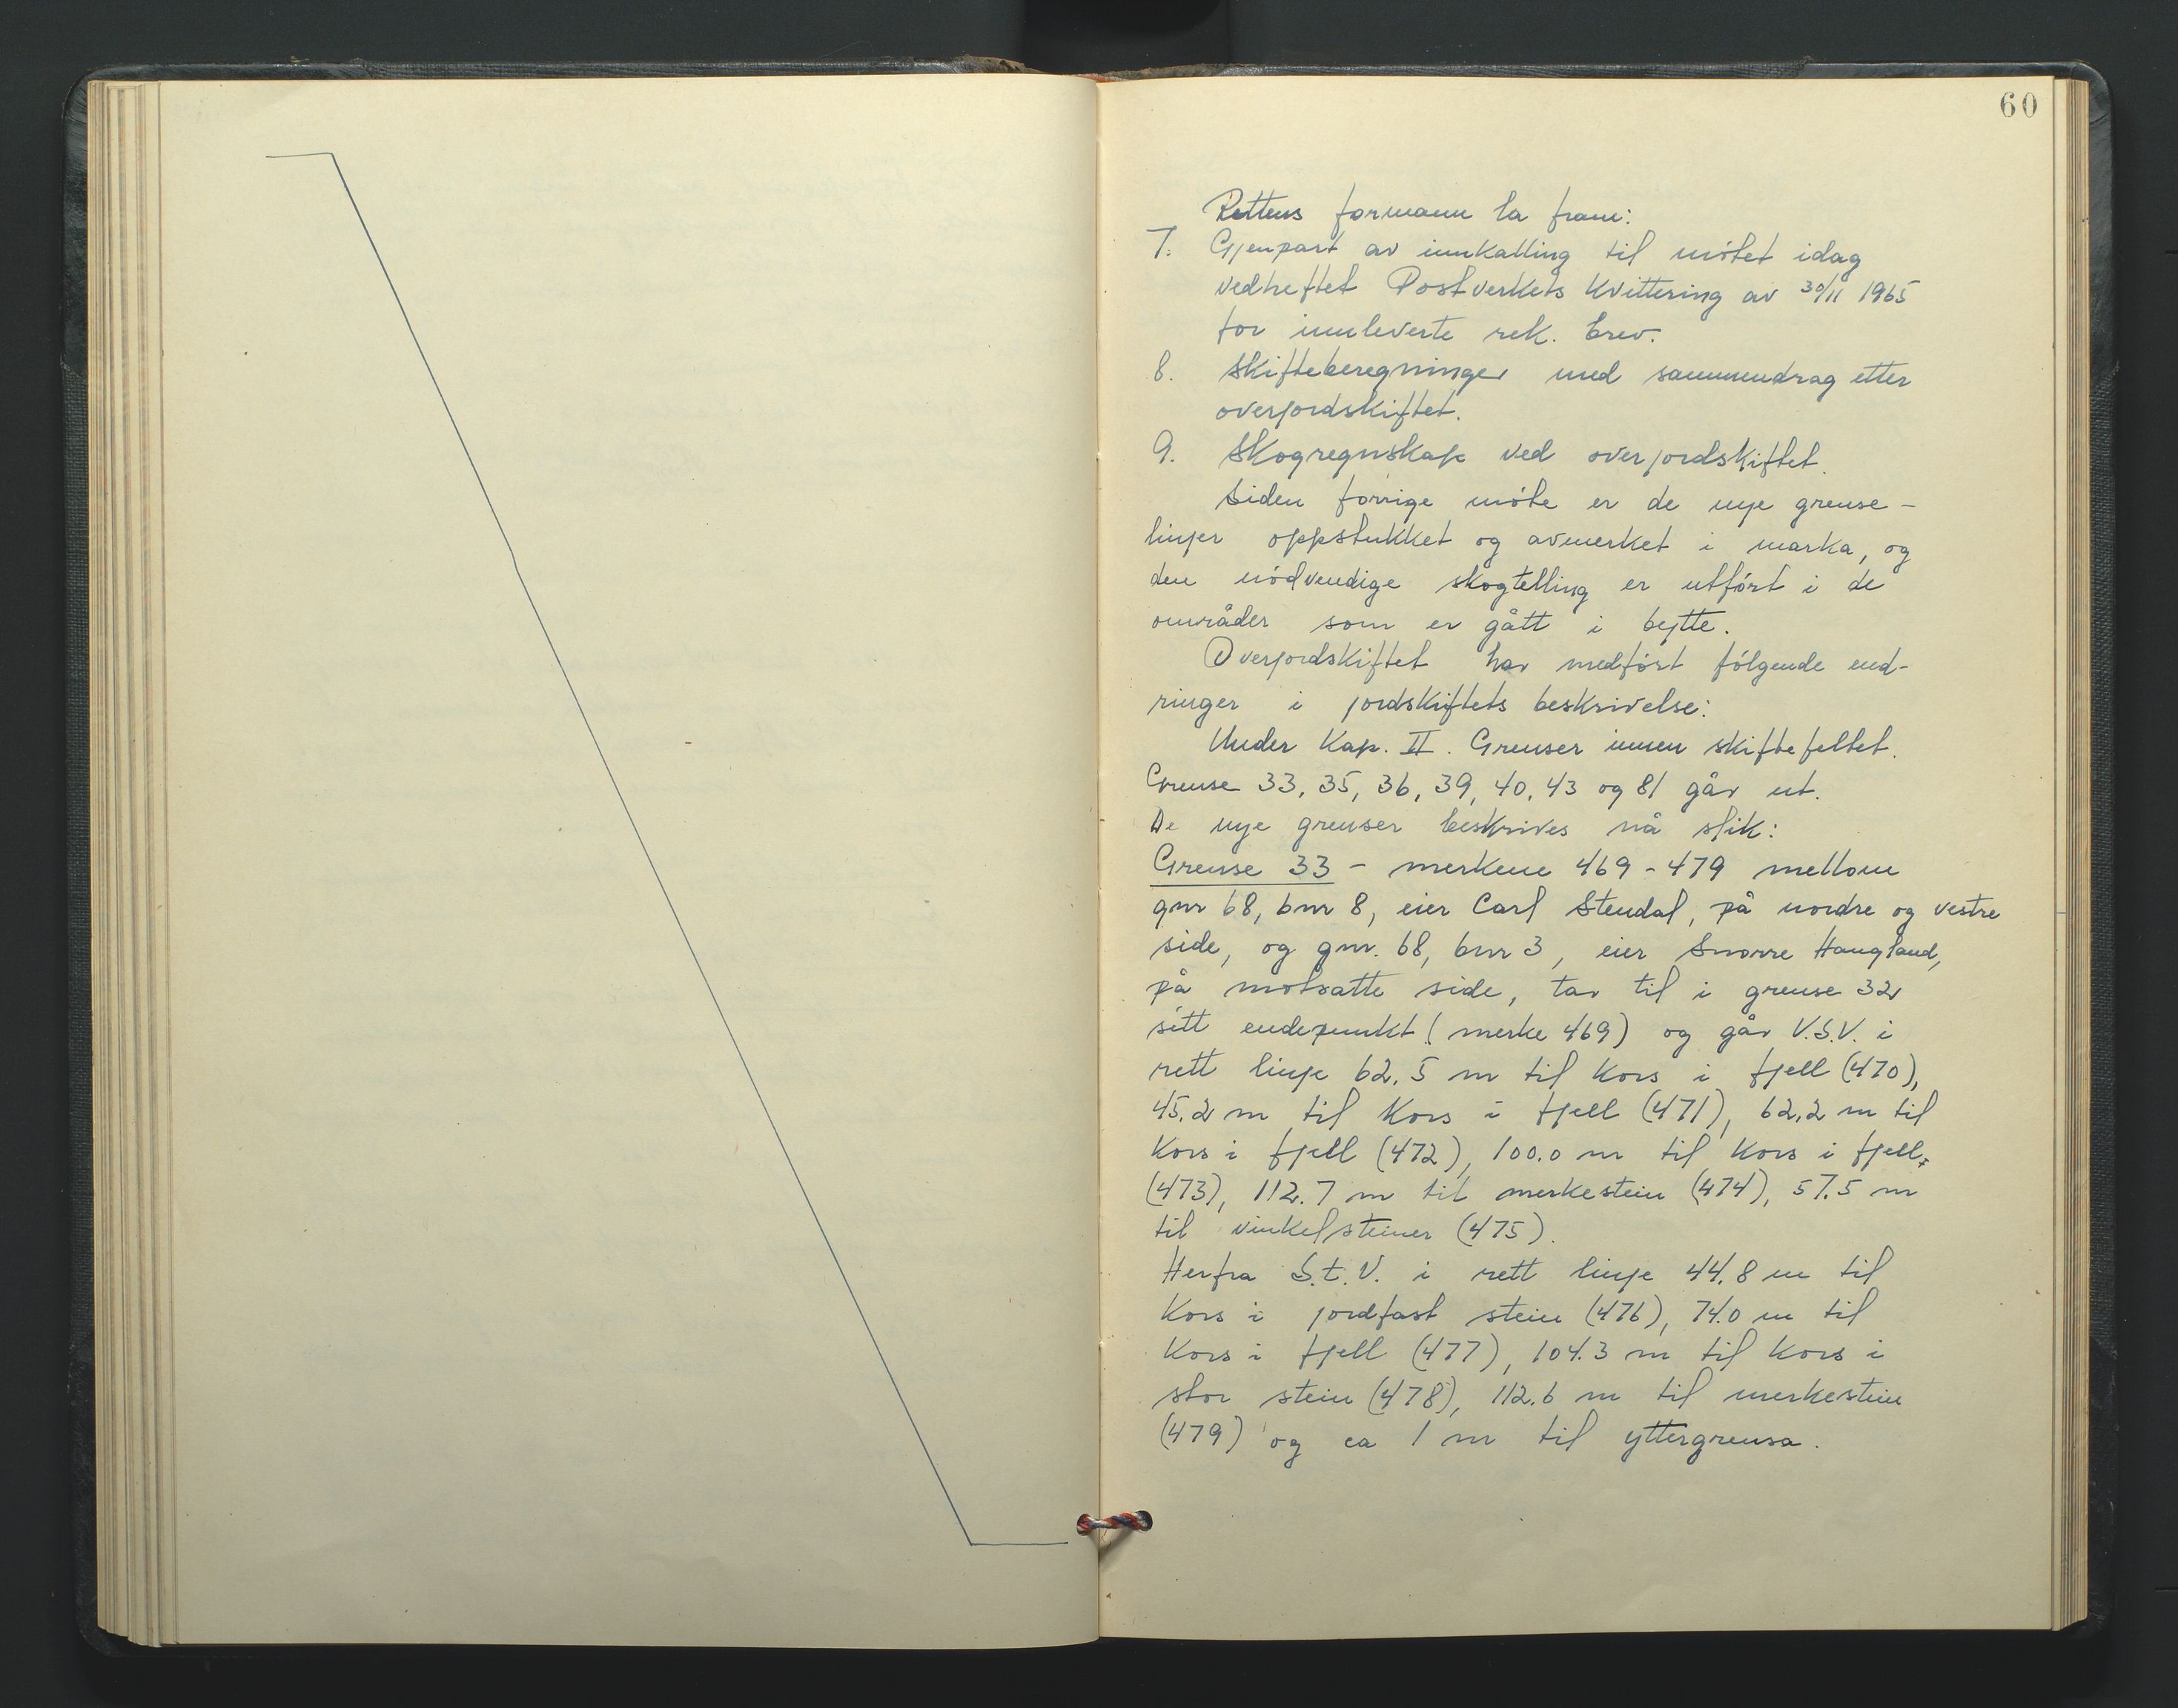 60
Rettens formann la fram:
7. Gjenpart av innkalling til mótet idag
vedheftet Postverkets kvittering av 30/11 1965
for innleverte rek. brev.
8. Skifteberegninger med sammendrag etter
overjordskiftet.
9. Skogregnskap ved overjordskiftet.
Siden forrige móte er de nye grense-
linjer oppstukket og avmerket i marka, og
den nódvendige skogtelling er utfórt i de
områder som er gått i bytte.
Overjordskiftet har medfórt fólgende end-
ringer i jordskiftets beskrivelse:
Under Kap. II. Grenser innen skiftefeltet.
Grense 33, 35, 36, 39, 40, 43 og 81 går ut.
De nye grenser beskrives nå slik:
Grense 33 - merkene 469 - 479 mellom
gnr 68, bnr 8, eier Carl Stendal, på nordre og vestre
side, og gnr. 68, bnr 3, eier Snorre Haugland,
på motsatte side, tar til i grense 32
sitt endepunkt (merke 469) og går V.S.V. i
rett linje 62.5 m til kors i fjell (470),
45.2 m til kors i fjell (471), 62.2 m til
kors i fjell (472), 100.0 m til kors i fjell,
(473), 112.7 m til merkestein (474), 57.5 m
til vinkelsteiner (475).
Herfra S.t.V. i rett linje 44.8 m til
kors i jordfast stein (476), 74.0 m til
kors i fjell (477), 104.3 m til kors i
stor stein (478), 112.6 m til merkestein
(479) og ca 1 m til yttergrensa.